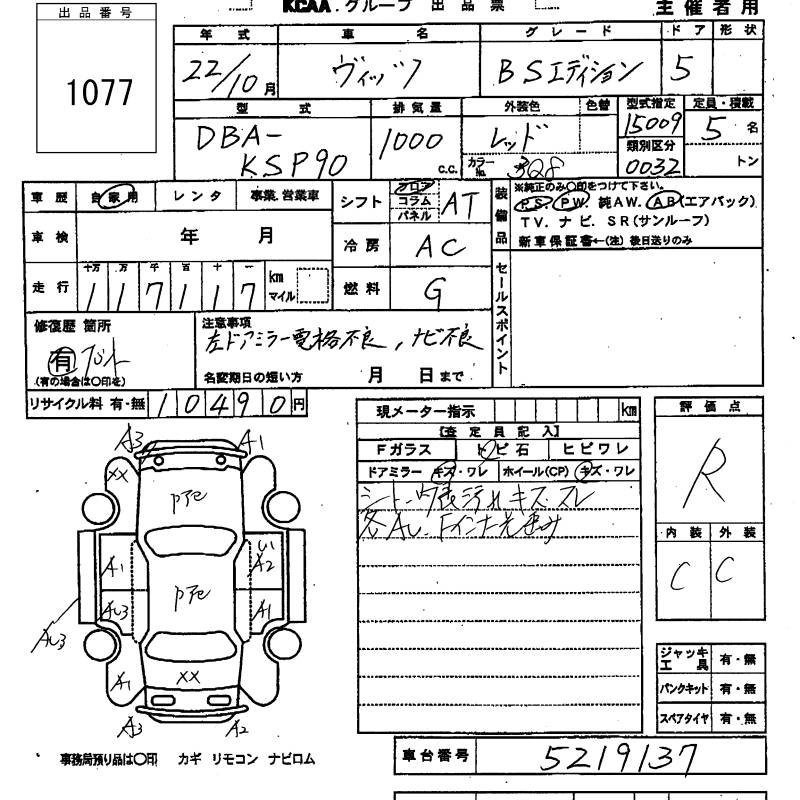 KCAA.グループ 出品票
主催者用
出品番号
1077
年式 車名 グレード ドア 形状
22/10月 ヴィッツ BSエディション 5
型式 排気量 外装色 色替 型式指定 定員・積載
DBA-KSP90 1000 c.c. レッド 15009 5名
カラーNo. 3Q8 類別区分 0032 トン
車歴 自家用 レンタ 事業.営業車
シフト フロア コラム パネル AT
装備品
※純正のみ○印をつけて下さい。
P.S. P.W. 純A.W. A.B(エアバック)
T.V. ナビ. S.R(サンルーフ)
新車保証書←(注) 後日送りのみ
車検 年 月
冷房 AC
走行 十万 万 千 百 十 一
117117 km マイル
燃料 G
セールスポイント
修復歴 箇所
有
(有の場合は○印を)
注意事項
左ドアミラー電格不良, ナビ不良
名変期日の短い方 月 日まで
リサイクル料 有・無 10490円
現メーター指示 km
【査定員記入】
Fガラス トビ石 ヒビワレ
ドアミラー キズ・ワレ ホイール(CP) キズ・ワレ
シート・内張汚れキズ.スレ
評価点
R
内装 外装
C C
A3 A1
XX
Pアe
A1 A2
Pアe
AU3 A1
AU3
A1 XX
A3 A2
ジャッキ工具 有・無
パンクキット 有・無
スペアタイヤ 有・無
事務局預り品は○印 カギ リモコン ナビロム
車台番号 5219137